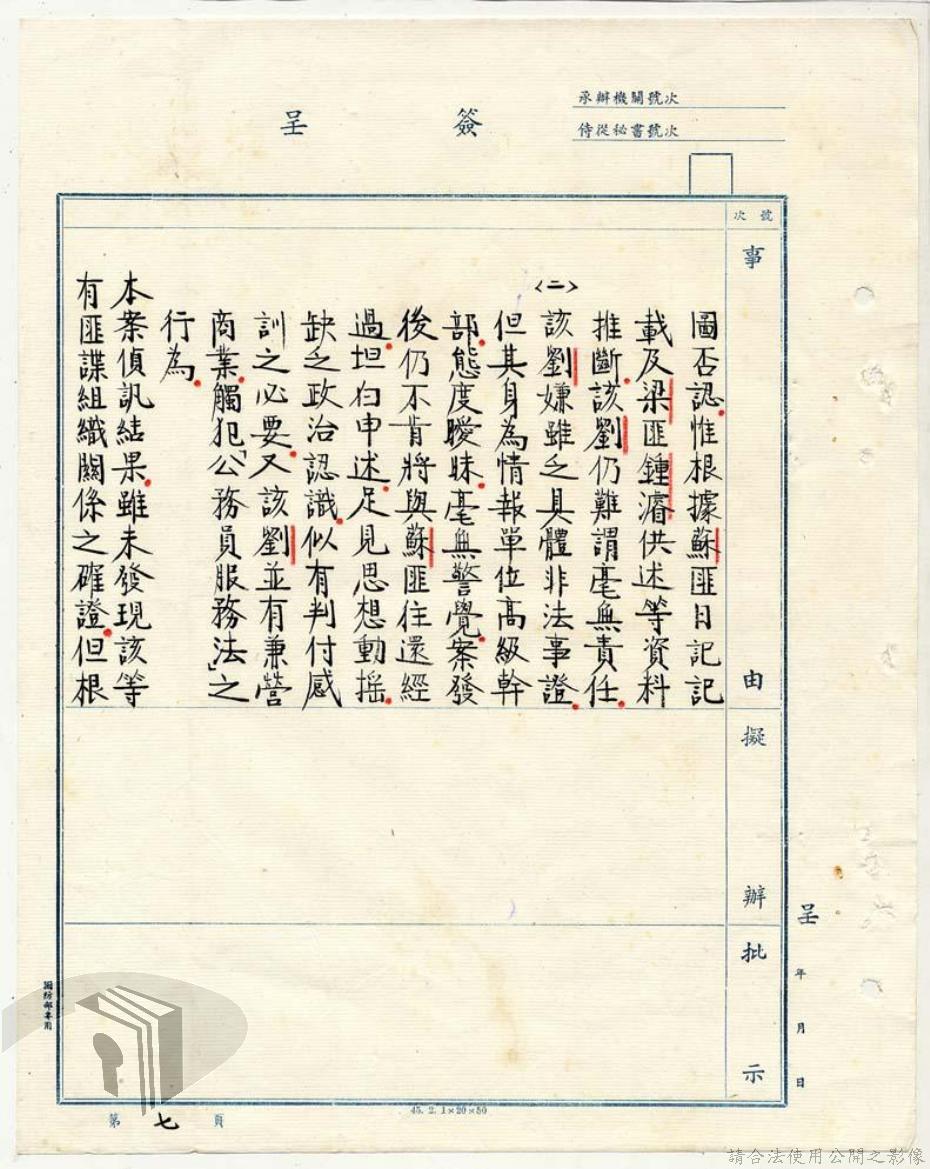 承辦機關號次
侍從秘書號次
簽呈
號次
事由
擬辦
批示
圖否認.惟根據蘇匪日記記
載及梁匪鍾濬供述等資料
推斷.該劉仍難謂毫無責任.
〈二〉該劉嫌雖乏具體非法事證.
但其身為情報單位高級幹
部.態度曖昧.毫無警覺.案發
後仍不肯將與蘇匪往還經
過.坦白申述.足見思想動搖.
缺乏政治認識.似有判付感
訓之必要.又該劉並有兼營
商業.觸犯「公務員服務法」之
行為.
本案偵訊結果.雖未發現該等
有匪諜組織關係之確證.但根
呈 年 月 日
國防部專用
第七頁
45. 2. 1×20×50
請合法使用公開之影像